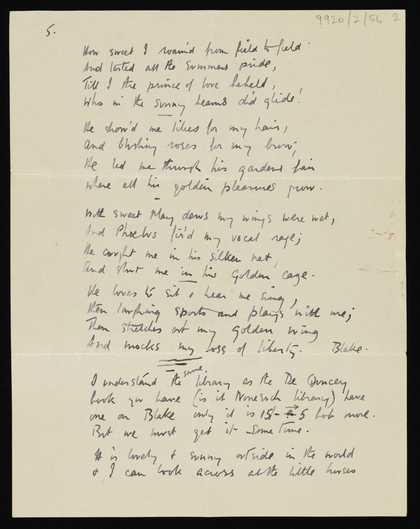 9920/2/56 2
5.
How sweet I roam'd from field to field
And tasted all the summers pride,
Till I the prince of love beheld,
Who in the sunny beams did glide!
He show'd me lilies for my hair,
And blushing roses for my brow;
He led me through his gardens fair
where all his golden pleasures grow.
With sweet May dews my wings were wet,
And Phoebus fir'd my vocal rage;
He caught me in his silken net
And shut me in his Golden cage.
He loves to sit & hear me sing,
Then laughing sports and plays with me;
Then stretches out my golden wing
And mocks my loss of liberty. Blake.
I understand the same library as the De Quincey
book you have (is it Nonesuch library) have
one on Blake only it is 15- 5 bob more.
But we must get it some time.
It is lovely & sunny outside in the world
& I can look across at the little houses